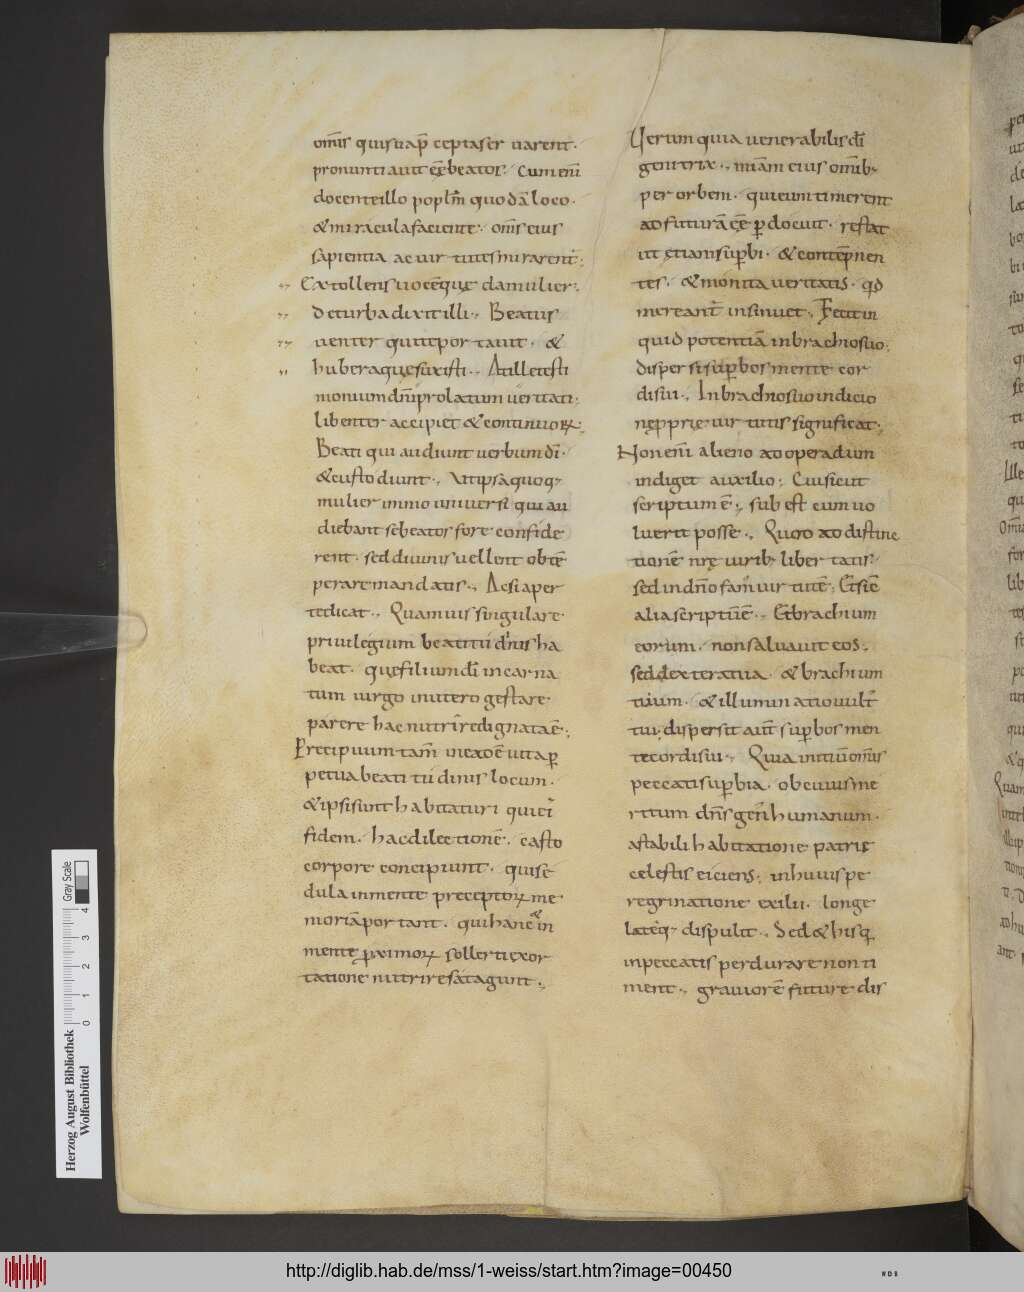 om̄is quisuap̄ ceptaser uarent·
pronuntiauit eẽ beatos· Cum eni̅
docente illo poplm̄ quodā loco·
& miracula faciente· om̄s eius
sapientia ac uirtutes mirarent̄·,
Extollens uocē que da mulier·,
De turba dixit illi·, Beatus
uenter qui te portauit· &
hubera que suxisti·, At ille testi
monium dn̄i prolatum ueritati·,
libenter accipiet & continuoꝝ·,
Beati qui audiunt uerbum dī·
& custodiunt·, Ut ipsa quoq;
mulier immo uniuersi qui au
diebant se beatos fore confide
rent· sed diuinis uellent obtē
perare mandatis·, Ac si aper
te dicat·, Quamuis singulare
priuilegium beatitudinis ha
beat· que filium dī incarna
tum uirgo inutero gestare·
parere hac nutrire dignata ē·,
Precipuum tam̄ inea dē uita ꝑ
petua beatitudinis locum·
& ipsi sunt habitaturi qui ei'
fidem· hac dilectionē· casto
corpore concipiunt· qui se
dula inmente preceptoꝝ me
moriā portant· qui hanc & in
mente ꝓximoꝝ sollerti exor
tatione nutrire satagunt·,
Uerum quia uenerabilis dī
genitrix·, miam eius omib;
per orbem· qui eum timerent
ad futurā eẽ ꝑ docuit· restat
ut etiam suꝑbi· & contēpnen
tes· & monita ueritatis· qd
mereant̄ insinuet·, Fecit in
quid potentiā inbrachio suo·,
dispersi suꝑbos mente cor
dis sui·, In brachio suo indicio
nē ꝓprie uirtutis significat·,
Non eni̅ alieno ad operadum
indiget auxilio·, Cui sicut
scriptum ē·, subest cum uo
luerit posse·, Quod ad distinc
tionē nr̄e uirib; libertatis·
sed indn̄o fam̄ uirtutē·, Et sic
alia scriptū ē·, Et brachium
eorum· non saluauit eos·,
sed dextera tua· & brachium
tuum· & illuminatio uult̄
tui, dispersit aut̄ suꝑbos men
te cordis sui·, Quia initiū om̄is
peccati suꝑbia· ob cuius me
ritum dn̄s gen̄ humanum·
astabili habitatione patrie
celestis eiciens·, in huius pe
regrinatione exilii· longe
lateq; dispulit·, Sed & hisq;
inpeccatis perdurare non ti
ment·, grauiorē future dis
Herzog August Bibliothek
Wolfenbüttel
0 1 2 3 4
Gray Scale
http://diglib.hab.de/mss/1-weiss/start.htm?image=00450